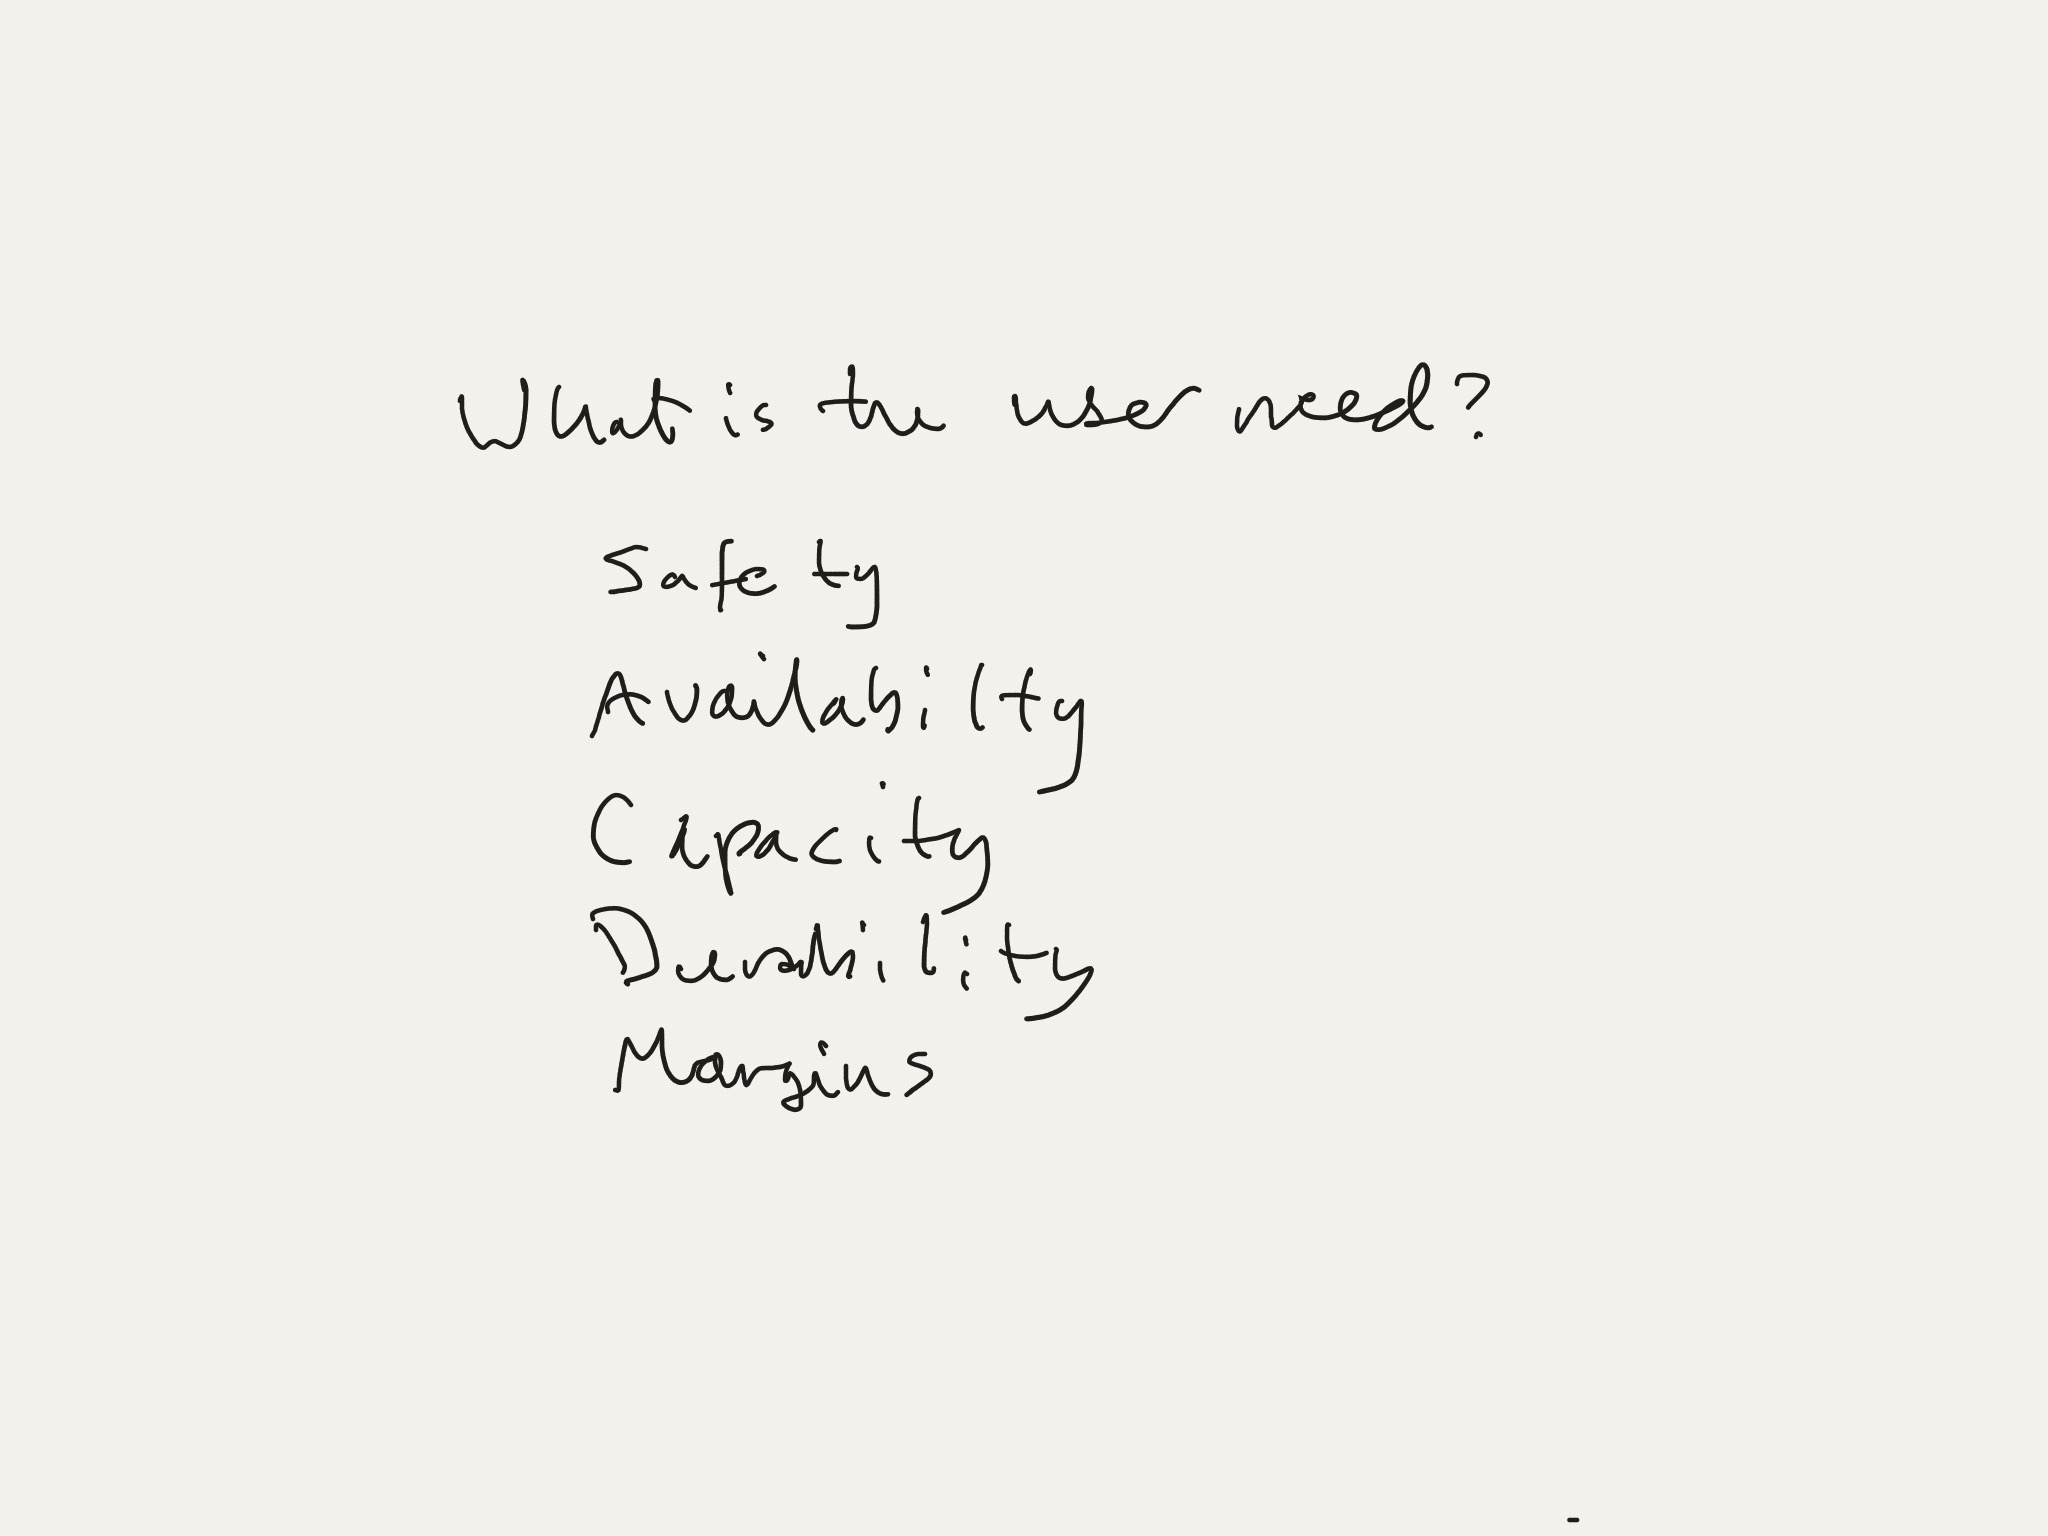 What is the user need?
Safety
Availabilty
Capacity
Durability
Margins